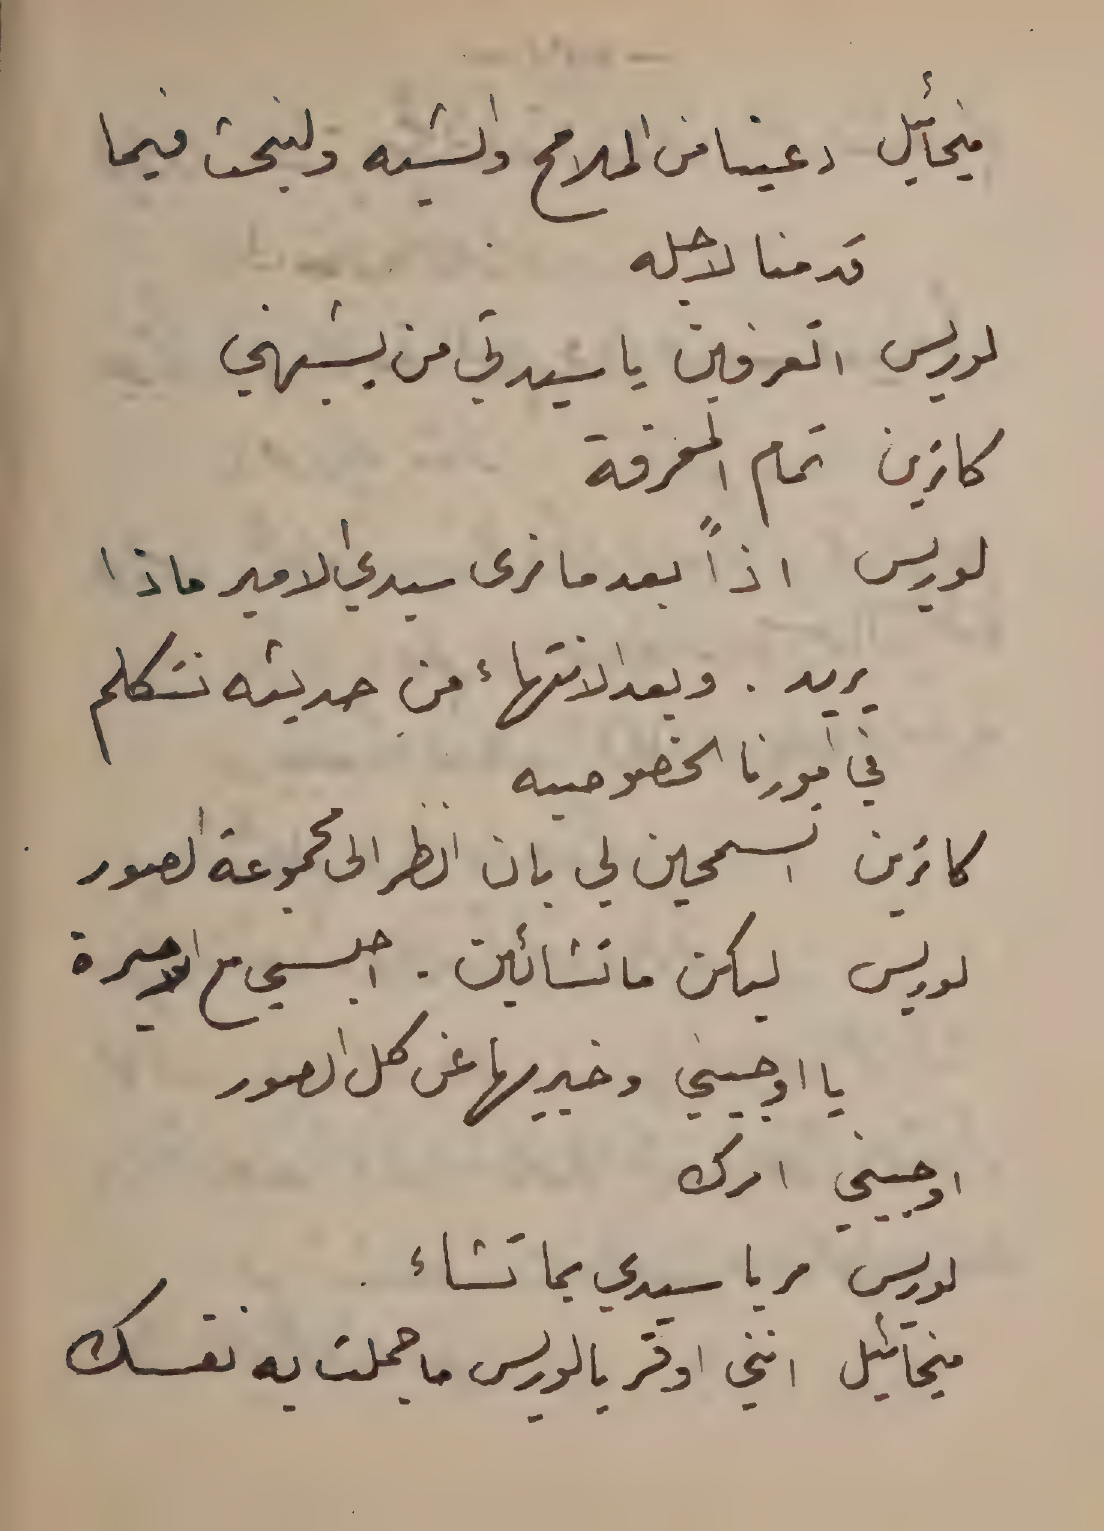 ميخائيل دعينا من الملامح والشبه ولنبحث فيما
قدمنا لاجله
لوريس اتعرفين يا سيدتي من يشبهني
كاترين تمام المعرفة
لوريس اذاً بعد ما نرى سيدي الامير ماذا
يريد . وبعد الانتهاء من حديثه نتكلم
في امورنا الخصوصيه
كاترين اتسمحين لي بان انظر الى مجموعة الصور
لوريس ليكن ما تشائين . اجلسي مع الاميرة
يا اوجيني وخبريها عن كل الصور
اوجيني امرك
لوريس مر يا سيدي بما تشاء .
ميخائيل انني اوقر يا لوريس ما جملت به نفسك